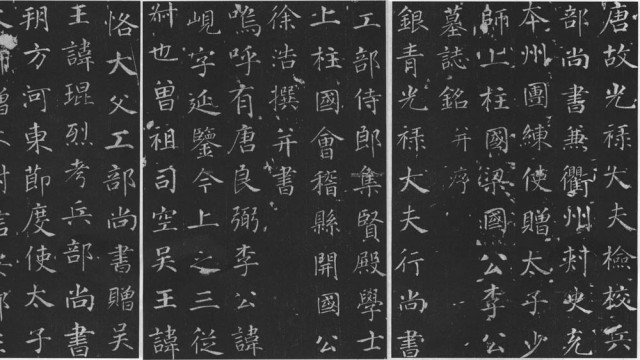 唐故光禄大夫檢校兵
部尚書兼衢州刾史充
本州團練使贈太子少
師上柱國梁國公李公
墓誌銘并序
銀青光禄大夫行尚書
工部侍郎集賢殿學士
上柱國會稽縣開國公
徐浩撰并書
嗚呼有唐良弼李公諱
峴字延鑒今上之三從
叔也曾祖司空吴王諱
恪大父工部尚書贈吴
王諱琨烈考兵部尚書
朔方河東節度使太子